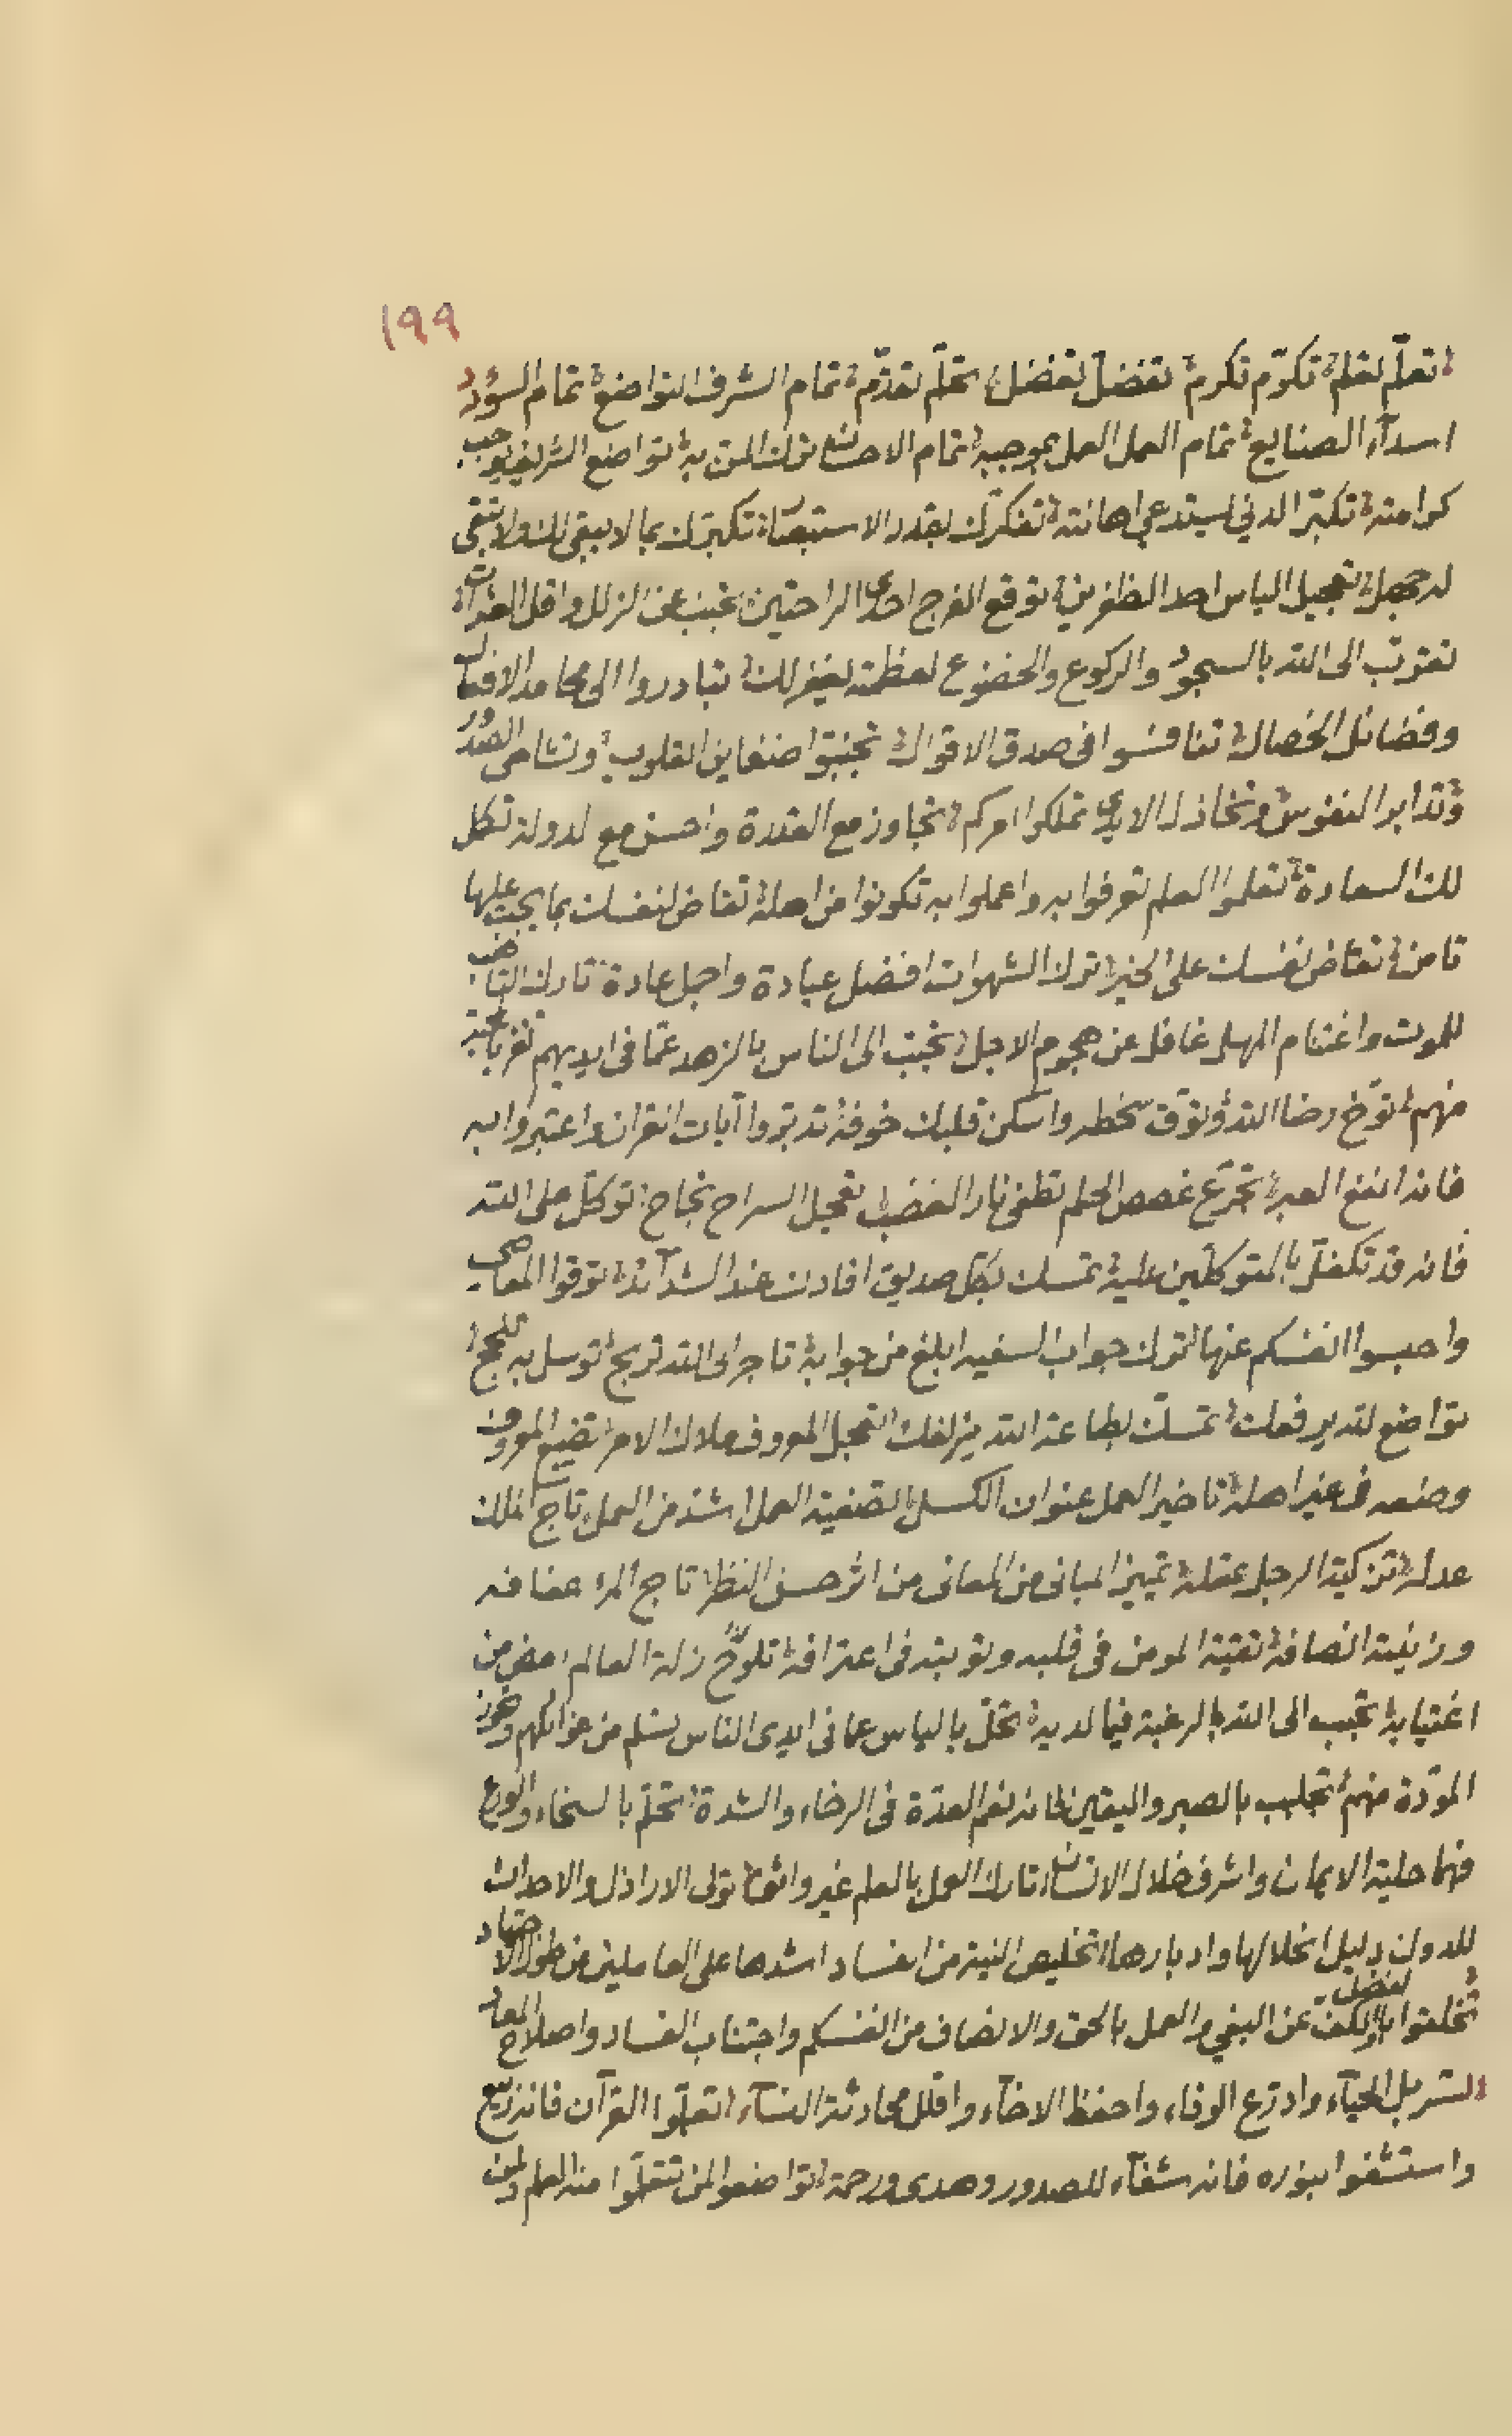 ١٩٩
تعلّم تعلم تكرّم تكرم تفضل تفضل تحلّم تقدّم تمام الشرف التواضع تمام السؤدد
اسدآء الصنايع تمام العمل العمل بموجبه تمام الاحسان ترك المن به تواضع الشريف يوجب
كرامته تكبّر الدني يستدعي اهانته تفكرك يفيدك الاستبصار تكبرك بما لا يبقى لك ولا تبقى
له جهل تعجيل الياس احد الظفرين توقع الفرج احدى الراحتين تجنب عن الزلل واقل العثرات
تقرب الى الله بالسجود والركوع والخضوع لعظمته ليغفر لك تبادروا الى محامد الافعال
وفضائل الخصال تنافسوا فى صدق الاقوال تجنبوا ضغاين القلوب وتشاحن الصدور
وتدابر النفوس وتخاذل الايدى تملكوا امركم تجاوز مع القدرة واحسن مع لدولة تكمل
لك السعادة تعلموا العلم تعرفوا به واعملوا به تكونوا من اهله تقاض لنفسك بما يجب عليها
تامن تقاض نفسك على الخير ترك الشهوات افضل عبادة واجمل عادة تارك التاهب
للموت واغتنام المهل غافل عن هجوم الاجل تحبب الى الناس بالزهد عمّا فى ايديهم تفز بالمحبة
منهم توخ رضا الله وتوق سخطه واسكن قلبك خوفه تدبروا آيات القران واعتبروا به
فانه ابلغ العبر تجرّع غصص الحلم تطفى نار الغضب تعجيل السراح نجاح توكل على الله
فانه قد تكفل بالمتوكلين عليه تمسك بكل صديق افادك عند الشدآئد توقوا المعاصي
واحبسوا انفسكم عنها ترك جواب السفيه ابلغ من جوابه تاجر الله تربح توسل به تنجح
تواضع لله يرفعك تمسك بطاعة الله يزلفك تعجل المعروف ملاك الامر تضييع المعروف
وضعه فى غير اهله تاخير العمل عنوان الكسل تصفية العمل اشد من العمل تاج الملك
عدله تزكية الرجل عقله تمييز المبانى من المعانى من اثر حسن النظر تاج المرء عفافه
وزينته انصافه تقية المومن فى قلبه وتوبته فى اعترافه تلوّح زلة العالم امض من
اغتيابه تحبب الى الله بالرغبة فيما لديه تحلّ بالياس عما فى ايدى الناس تسلم من غوائلهم وتحرز
المودّة منهم تجلبب بالصبر واليقين فانه نعم العدّة فى الرخاء والشدة تحلّ بالسخاء والورع
فهما حلية الايمان واشرف خلال الانسان تارك العمل بالعلم غير واثق تولى الاراذل والاحداث
للدول دليل انحلالها وادبارها تخليص النية من الفساد اشدها على العاملين من طول الاجتهاد
تخلقوا بالفضل والكف عن البغي والعمل بالحق والانصاف من انفسكم واجتناب الفساد واصلاح المعاد
تسربل الحيآء وادرع الوفاء واحفظ الاخآء واقلل محادثة النسآء تعلّموا القرآن فانه ربيع
واستشفوا بنوره فانه شفآء للصدور وهدى ورحمة تواضعوا لمن تتعلّموا منه العلم ولمن